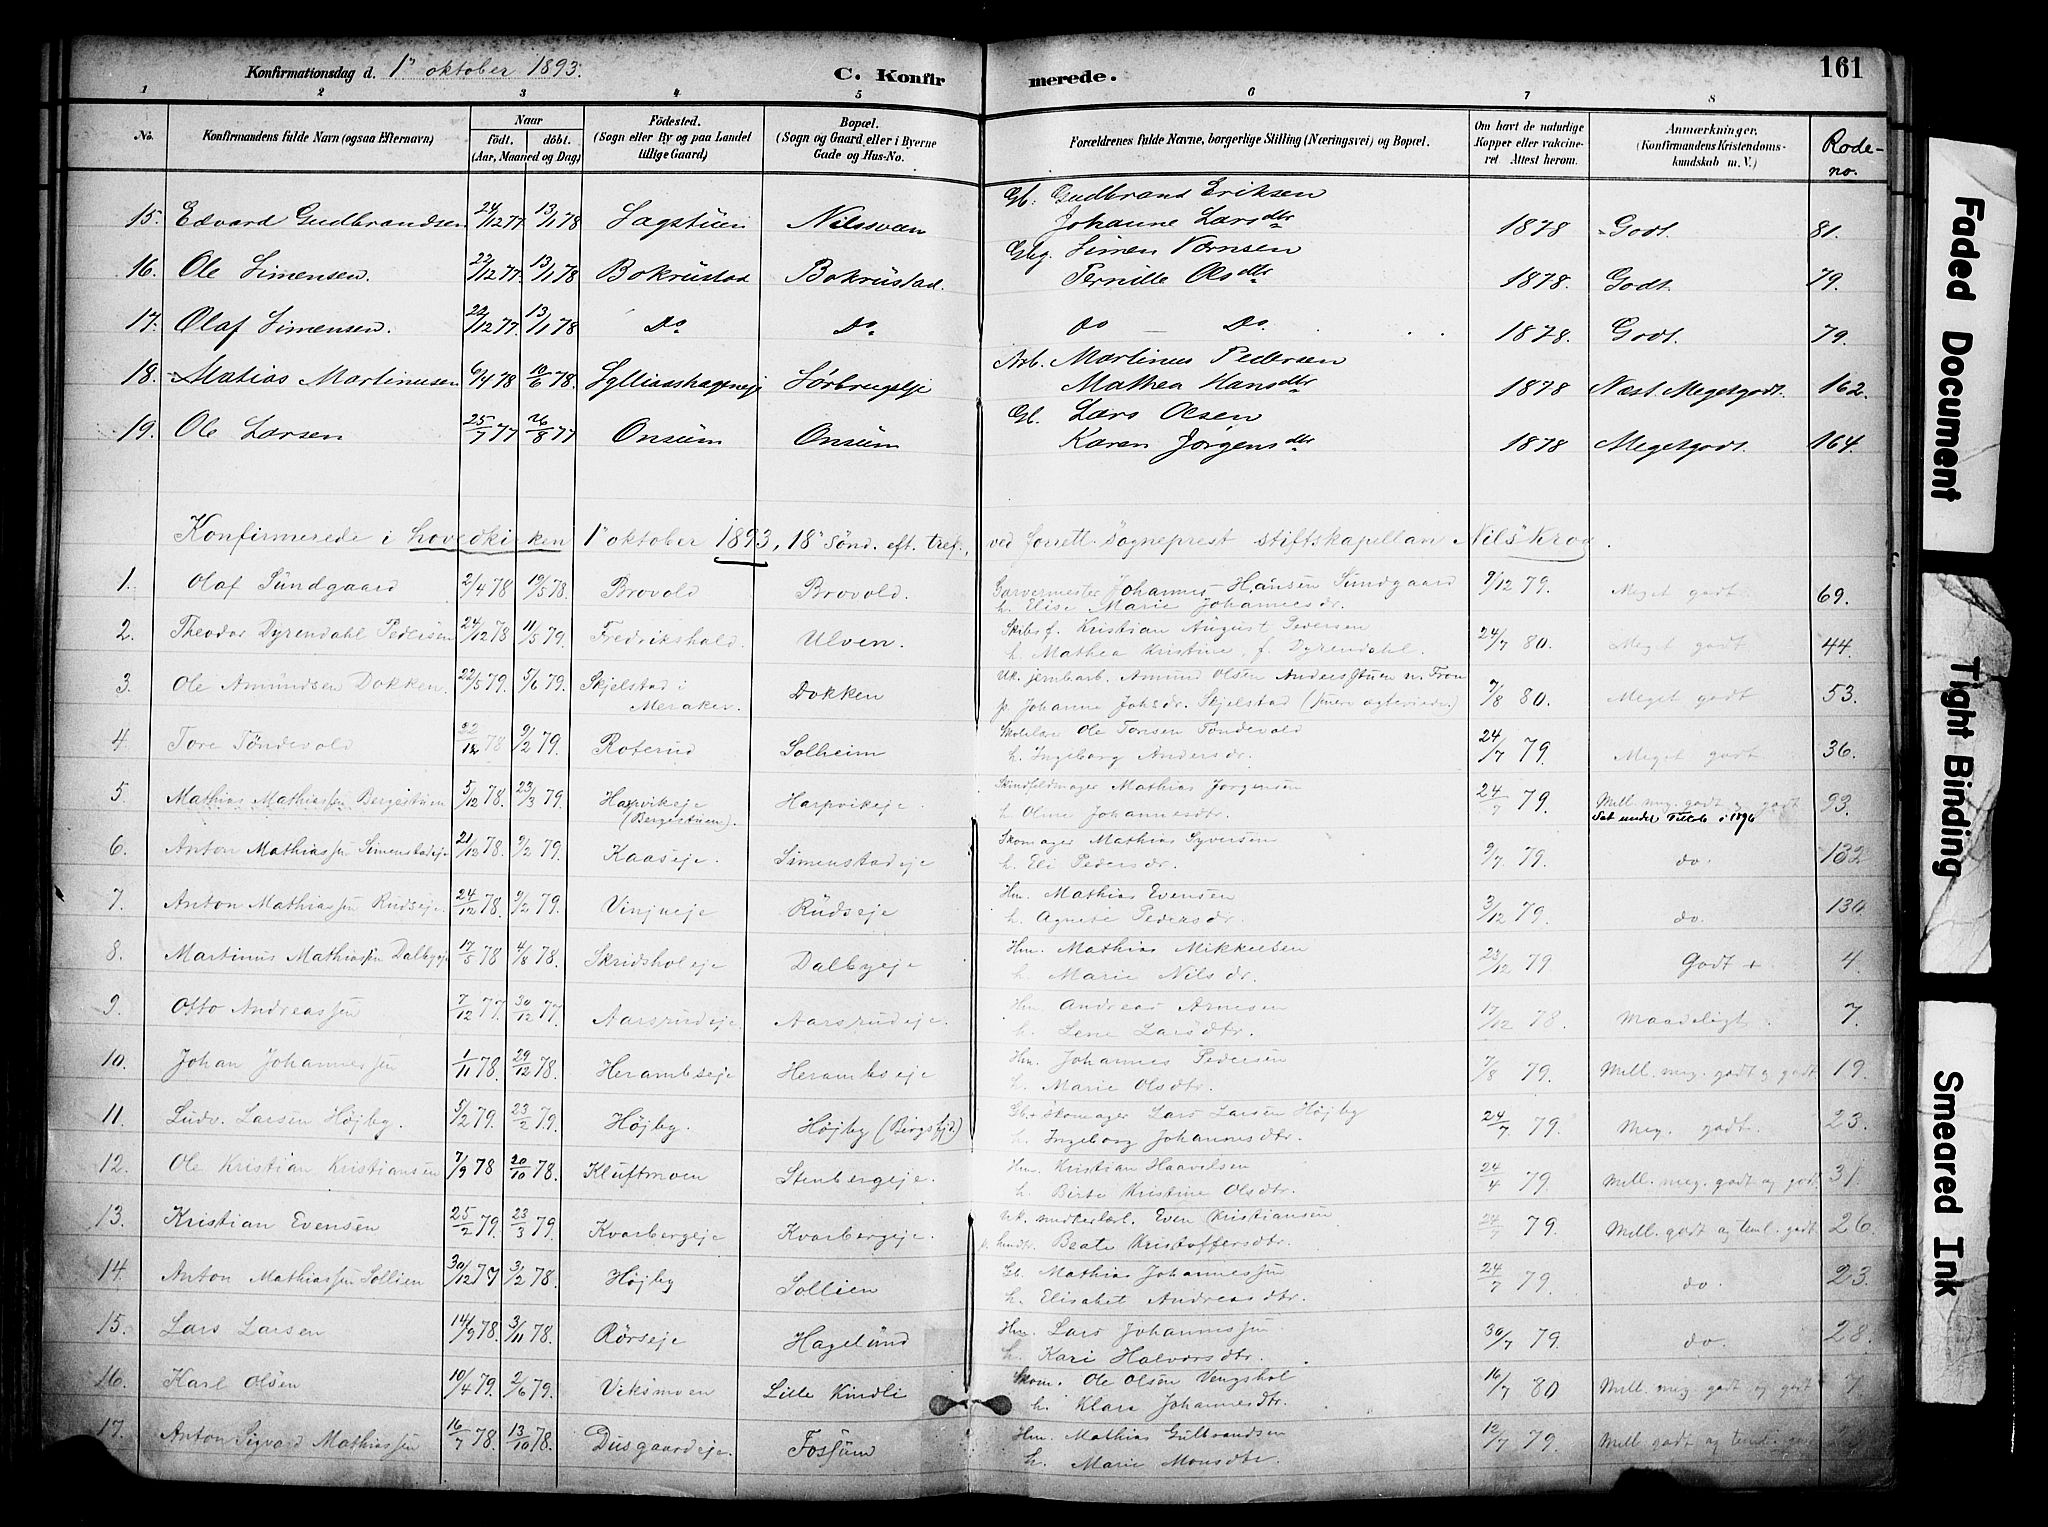 Konfirmationsdag d. 1ˢ oktober 1893. C. Konfirmerede. 161
1 2 3 4 5 6 7 8
No. Konfirmandens fulde Navn (ogsaa Efternavn) Naar født. døbt. (Aar, Maaned og Dag) Fødested. (Sogn eller By og paa Landet tillige Gaard) Bopæl. (Sogn og Gaard eller i Byerne Gade og Hus-No. Forældrenes fulde Navne, borgerlige Stilling (Næringsvei) og Bopæl. Om havt de naturlige Kopper eller vaccineret Attest herom. Anmærkninger. (Konfirmandens Kristendomskundskab m. V.) Rode-no.
15. Edvard Gudbrandsen 24/12 77. 13/1 78 Sagstuen Nilssveen Gb. Gudbrand Eriksen
Johanne Larsdtr 1878 Godt. 81.
16. Ole Simensen. 22/12 77. 13/1 78 Bokrustad Bokrustad. Gbg. Simen
Pernille Olsdtr 1878. Godt. 79.
17. Olaf Simensen. 22/12 77. 13/1 78 Do Do do — Do. 1878. Godt. 79.
18. Matias Martinusen 6/4 78 10/6 78. Sørbrugseje Arb. Martinus Pedersen
Mathea Hansdtr 1878 Næst. Megetgodt. 162.
19. Ole Larsen 25/7 77 26/8 77 Onsum Onsum Gb. Lars Olsen
Karen Jørgensdtr 1878 Megetgodt. 164.
Konfirmerede i hovedkirken 1ˢ oktober 1893, 18ˢ sønd. eft. tref., ved forrett. sogneprest stiftskapellan Nils Krog.
1. Olaf Sundgaard 2/4 78 19/5 78. Brovold Brovold. Garvermester Johannes Hansen Sundgaard
h. Elise Marie Johannesdr. 9/12 79. Meget godt 69.
2. Theodor Dyrendahl Pedersen 24/12 78 11/5 79. Fredrikshald. Ulven. Skibsf. Kristian August Pedersen
h. Mathea Kristine, f. Dyrendahl. 24/7 80. Meget godt 44.
3. Ole Amundsen Dokken. 22/5 79. 5/6 79. Skjelstad i
Meraker. Dokken Uk. jernbarb. Amund Olsen Andersstuen n. Fron
p. Johanne Johsdr. Skjelstad 7/8 80. Meget godt 53.
4 Tore Tøndevold 12 78 9/2 79. Roterud Solheim Skolelær. Ole Toresen Tøndevold
h. Ingeborg Andersdr. 24/7 79. Meget godt 36.
5. Mathias Mathiassen Bergestuen 5/12 78. 23/3 79. Harpvikeje
(Bergestuen). Harpvikeje Skindfeldmager Mathias Jørgensen
h. Oline Johannesdtr. 24/7 79. Mell. meg. godt og godt 93.
Sat under i 1896
6. Anton Mathiassen Simenstadeje 21/12 78. 9/2 79. Kaaseje. Simenstadeje Skomager Mathias Syversen
h. Eli Pedersdr. 9/7 79. do. 132
7. Anton Mathiassen Rudseje. 24/12 78. 9/2 79. Vinjueje Rudseje Hm. Mathias Evensen
h. Agnete Pedersdr. 3/12 79. do. 130
8. Martinus Mathiassen Dalbyeje 17/5 78 4/8 78. Skridsholeje Dalbyeje Hm. Mathias Mikkelsen
h. Marie Nilsdr. 23/12 79 Godt + 4.
9. Otto Andreassen 7/12 77. 30/12 77. Aarsrudeje Aarsrudeje. Hm Andreas Arnesen
h. Lene Larsdtr. 17/12 78. Maadeligt. 7.
10. Johan Johannessen 1/11 78. 29/12 78. Herambseje Herambseje. Hm. Johannes Pedersen
h. Marie Olsdtr. 7/8 79. Mell. meg. godt og godt 19.
11. Ludv. Larsen Højby. 5/2 79. 23/2 79. Højby. Højby Gb. skomager Lars Larsen Højby
h. Ingeborg Johannesdtr. 24/7. 79. Meg. godt. 23.
12. Ole Kristian Kristiansen 7/9 78 20/10 78. Kluftmoen Stenbergeje. Hm. Kristian Haavelsen
h. Birte Kristine Olsdtr. 24/4 79. Mell. meg. godt og godt 31.
13. Kristian Evensen 25/2 79. 23/3 79. Kvarbergeje Kvarbergeje. Uk. Even Kristiansen
p. Beate Kristoffersdtr. 24/7 79. Mell. godt og teml. godt 26.
14. Anton Mathiassen Sollien 30/12 77 3/2 78. Højby Sollien Gb. Mathias Johannessen
h. Elisabet Andreasdtr. 24/7 79. do. 23.
15. Lars Larsen 14/9 78. 3/11 78. Rørseje Hagelund Hm. Lars Johannessen
h. Kari Halvorsdtr. 30/7 79. do. 28.
16. Karl Olsen 10/4 79. 2/6 79. Viksmoen Lille Kindli Skom. Ole Olsen Vengshol
h. Klara Johannesdtr. 16/7 80 Mell. meg. godt og godt 7.
17. Anton Sigvard Mathiassen 16/7 78. 13/10 78. Dusgaardeje. Fossum Hm. Mathias Gulbrandsen
h. Marie Monsdtr. 12/7 79. Mell. godt og
Faded Document
Tight Binding
Smeared Ink